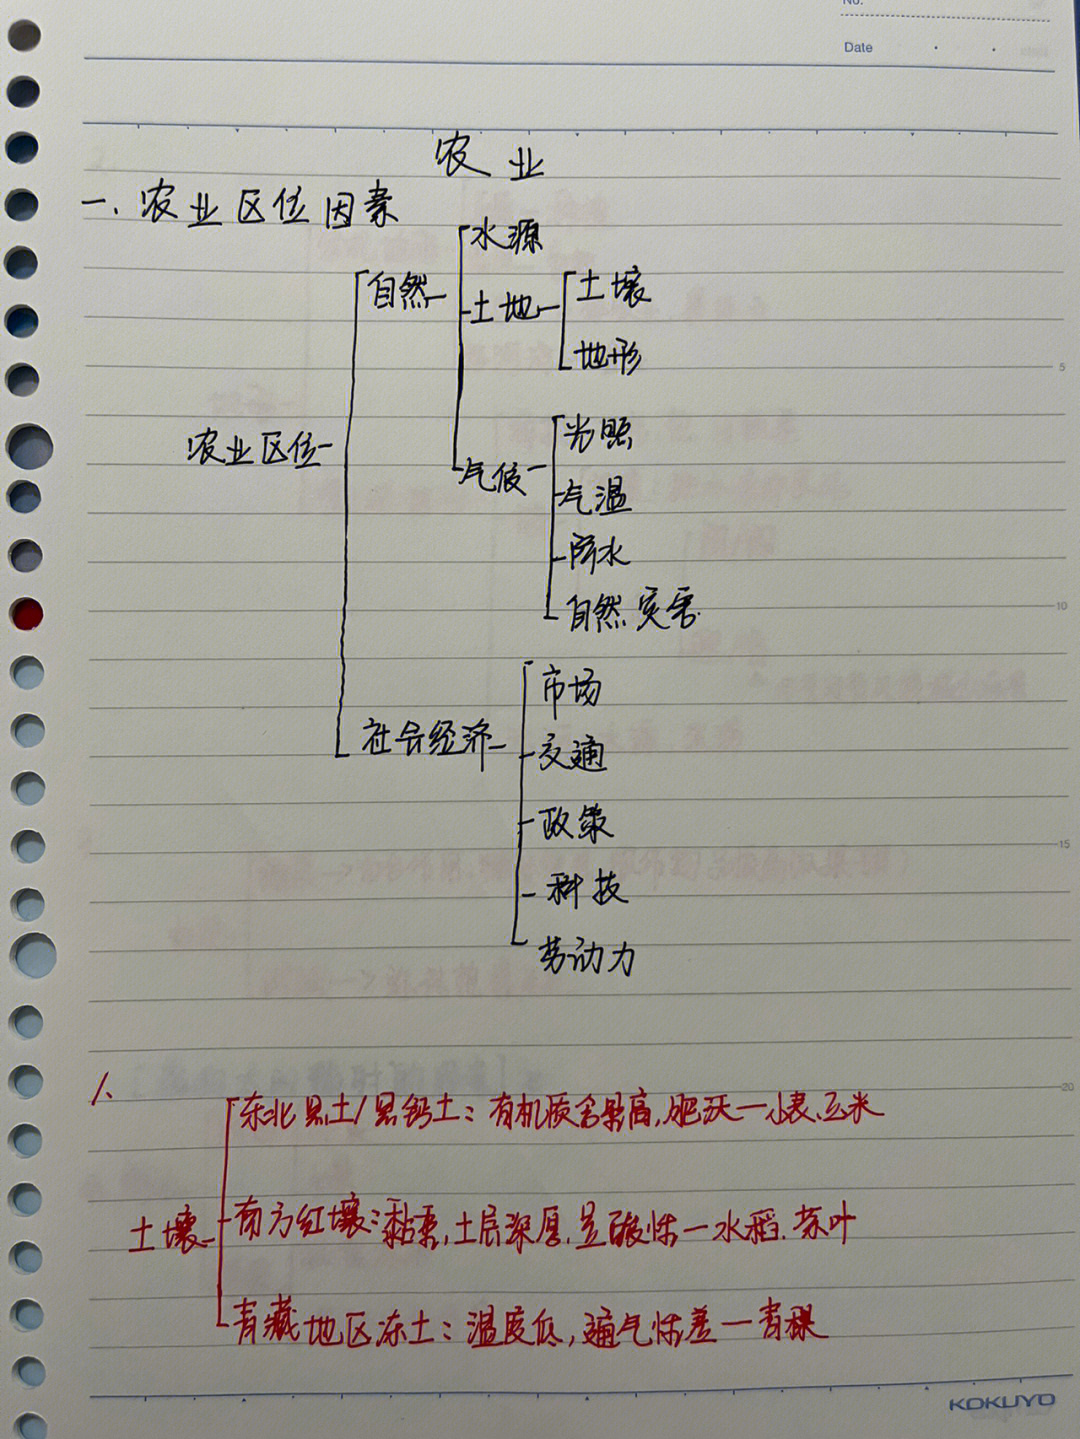 No.
Date
农业
一.农业区位因素
水源
自然
土壤
土地
地形
光照
农业区位
气候
气温
降水
自然灾害
市场
社会经济
交通
政策
科技
劳动力
1.
东北黑土/黑钙土:有机质含量高,肥沃—小麦、玉米
南方红壤:黏重,土层深厚,呈酸性—水稻、茶叶
土壤
青藏地区冻土:温度低,通气性差—青稞
5
10
15
20
KOKUYO